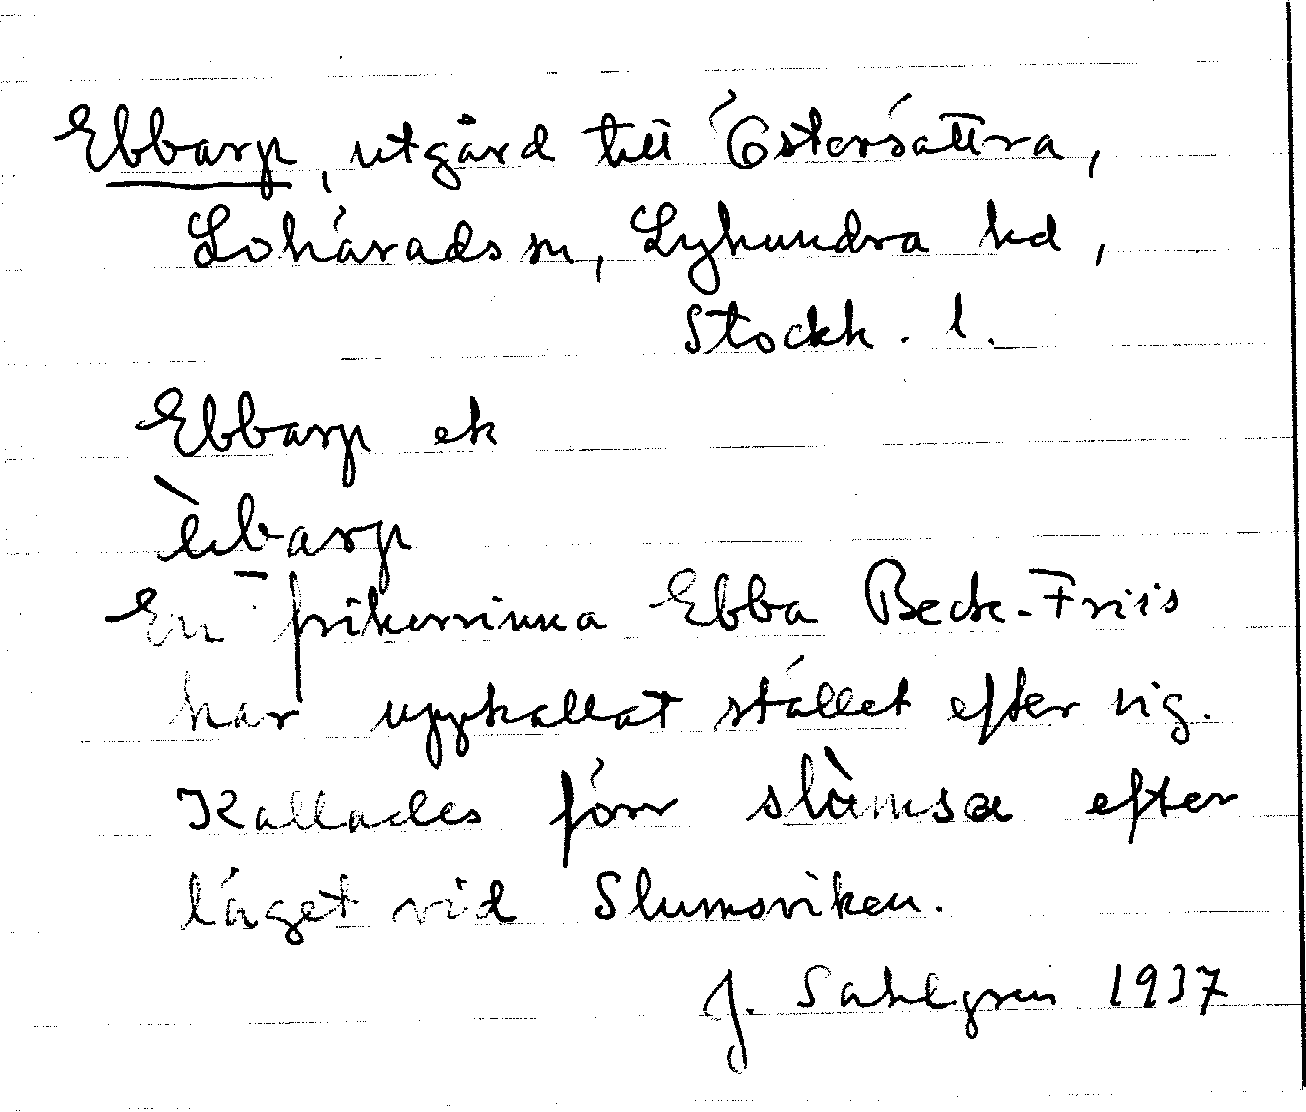 Ebbarp, utgård till Östersättra,
Lohärads sn, Lyhundra hd,
Stockh. l.
Ebbarp ek
èbarp
En friherrinna Ebba Beck-Friis
har uppkallat stället efter sig.
Kallades förr slùmsa efter
läget vid Slumsviken.
J. Sahlgren 1937